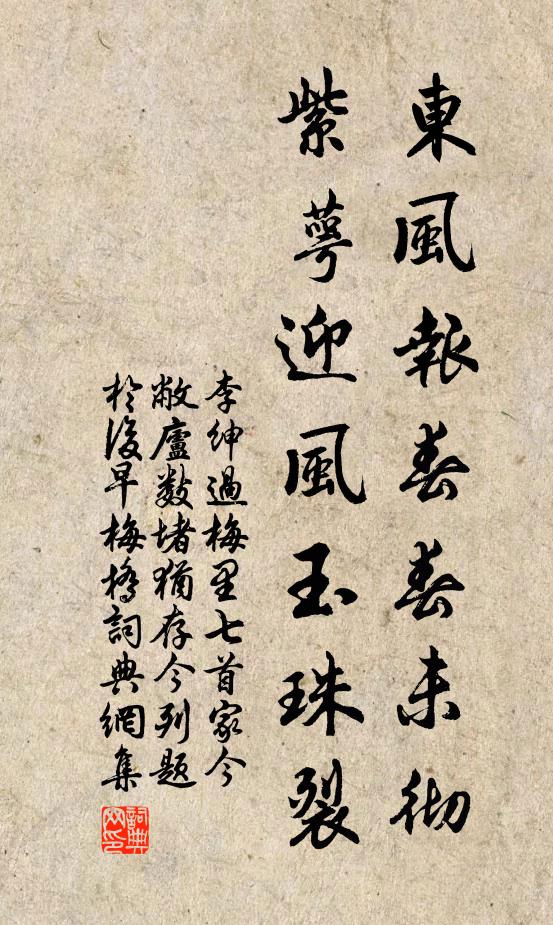 東風報春春未徹
紫萼迎風玉珠裂
李紳過梅里七首家今
敝廬數堵猶存今列題
於後早梅橋詞典網集
詞典
网印